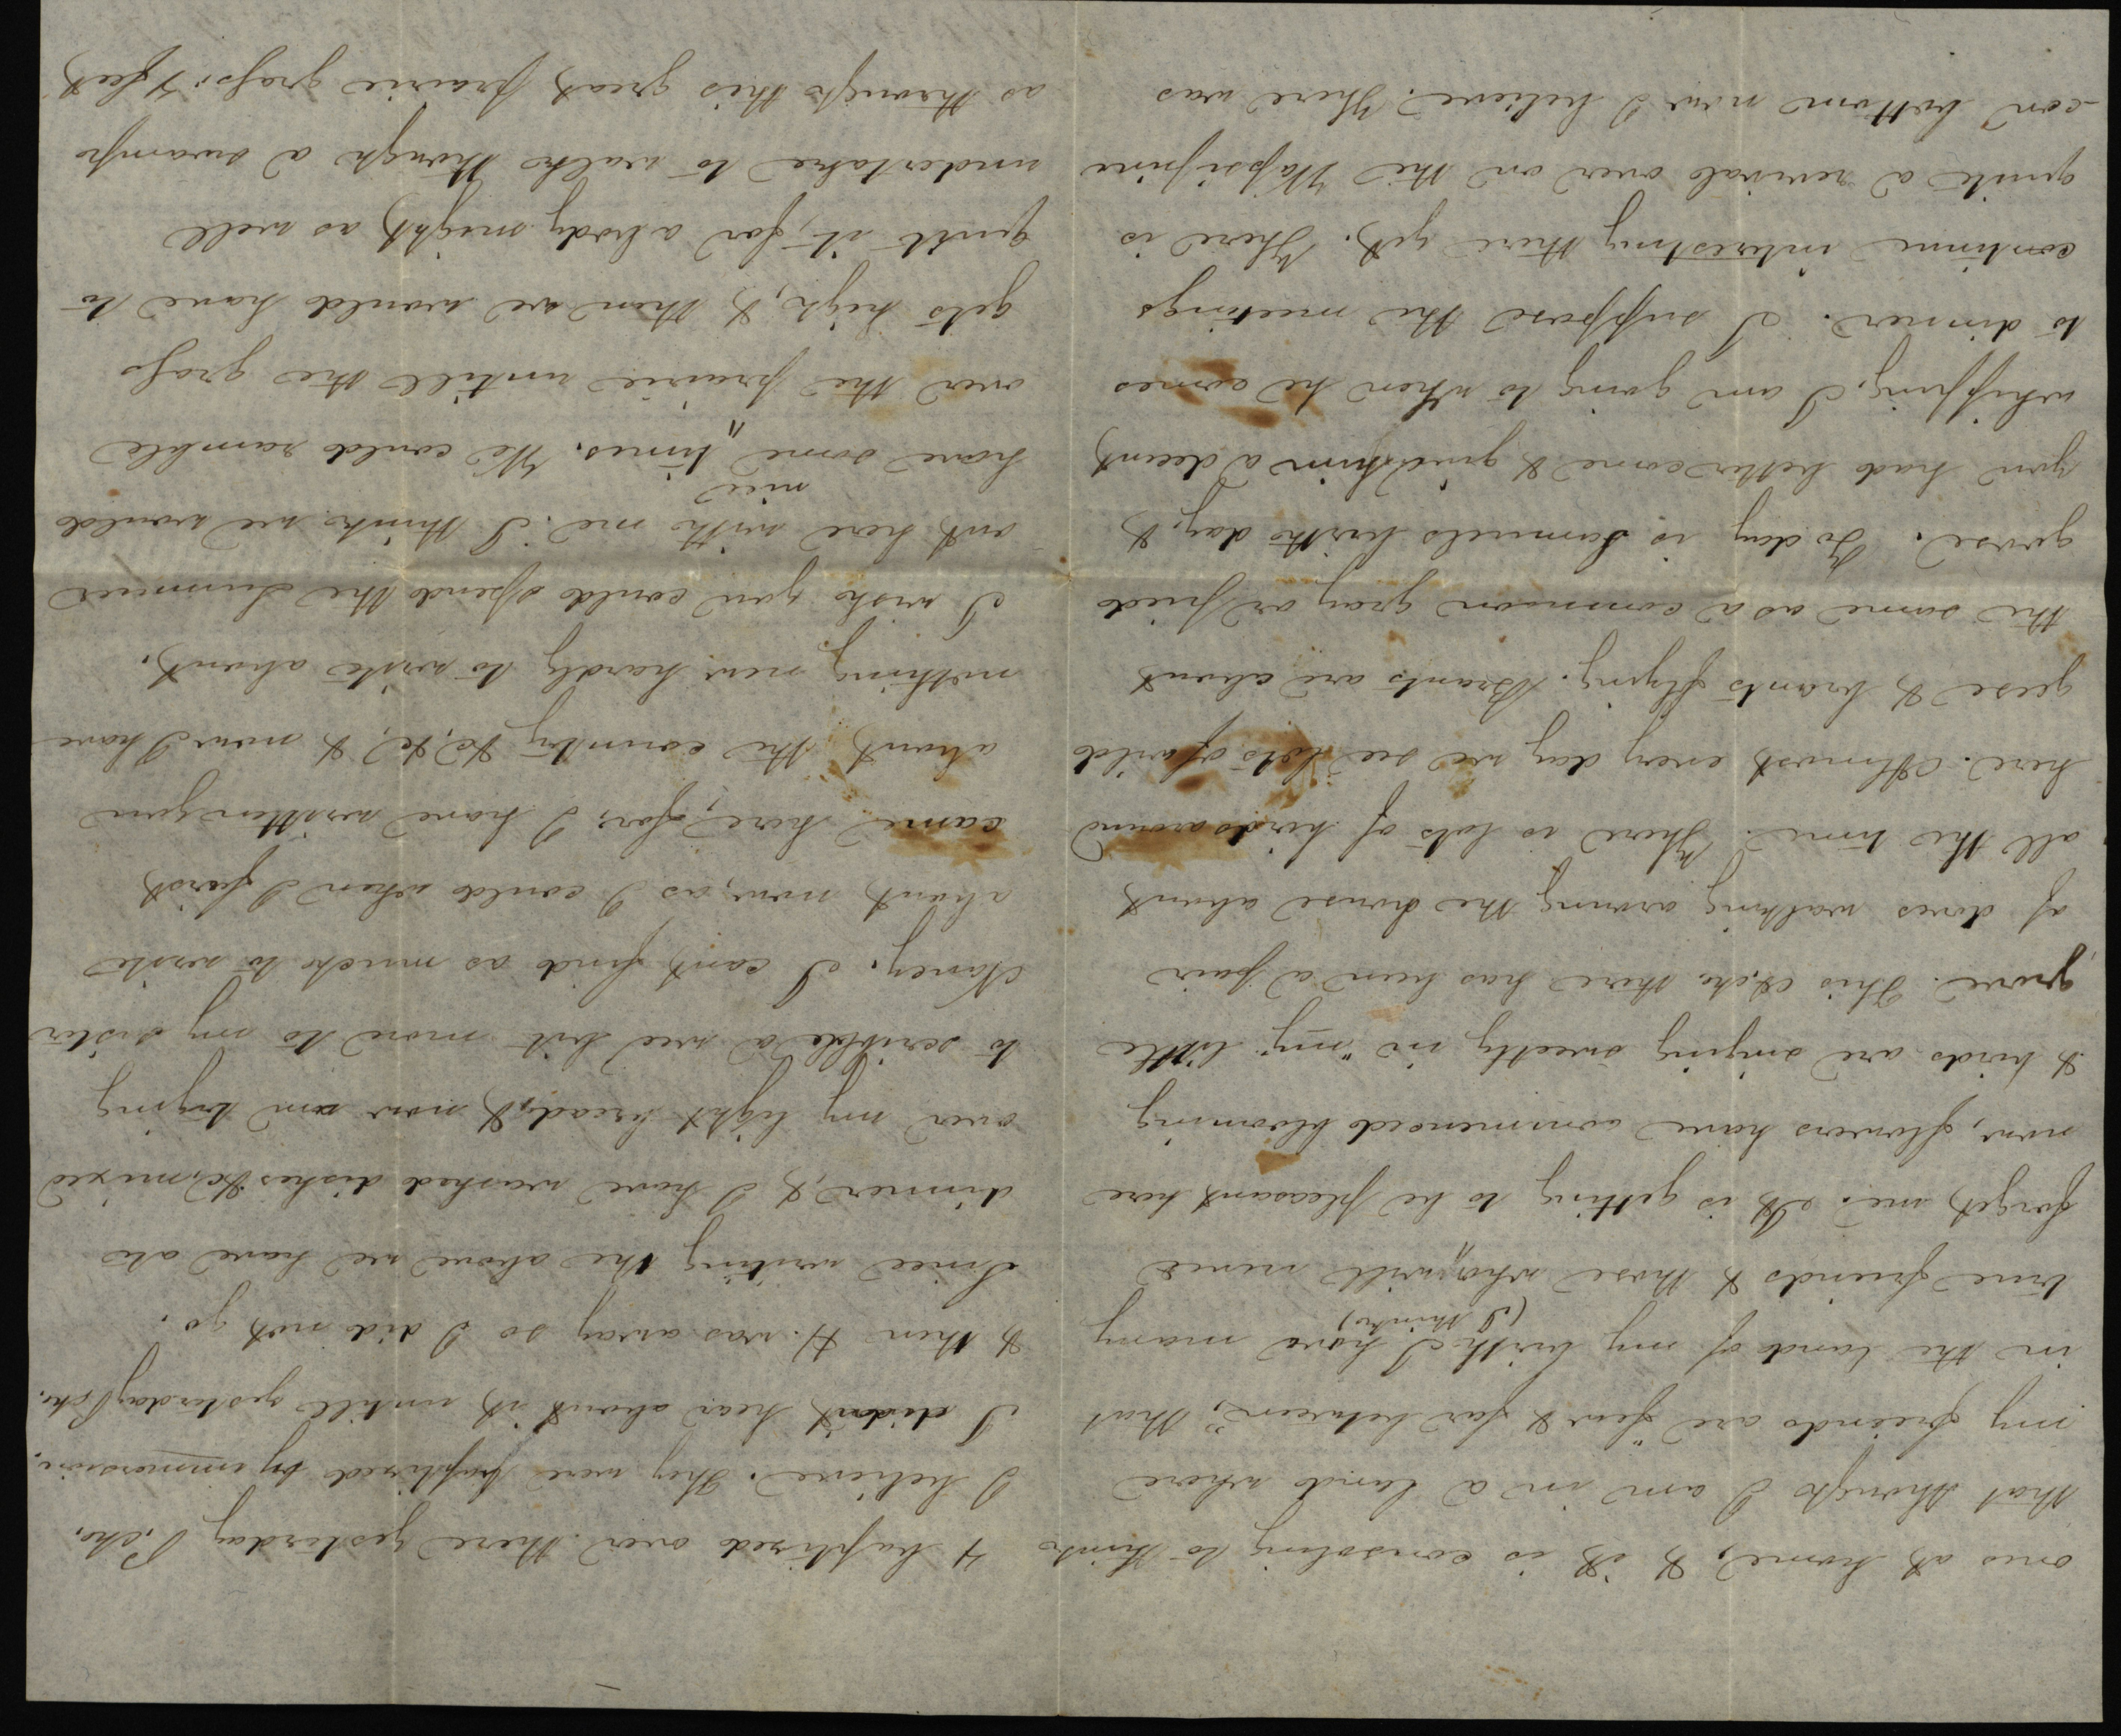 ones at home, & it is consoling to think
that though I am in a land where
my freinds are "few & far between", that
in the land of my birth I have many
(I think)
true freinds & those who will never
forget me. It is getting to be pleasant here
now, flowers have commenced blooming
& birds are singing sweetly in "my" little
grove. This there has been a pair
of doves walking aroung the house about
all the time. There is lots of birds around
here. Almost every day we see lots of wild
geese & brants flying. Brants are about
the same as a common gray or pied
goose. To day is Samuels birth day, &
you had better come & give him a decent
whipping. I am going to when he comes
to dinner. I suppose the meetings
continue interesting there yet. There is
quite a revival over on the Wapsipine
-con bottom now I believe. There was
4 baptised over there yesterday
I believe. They were baptised by immersion.
I didnt hear about it untill yesterday
& then H. was away so I did not go.
Since writing the above we have ate
dinner, & I have washed dishes &c, mixed
over my light bread, & now am trying
to scribble a wee bit more to my sister
Nancy. I cant find as much to write
about now, as I could when I first
came here, for, I have written you
about the country &c, &c, & now I have
nothing new hardly to write about.
I wish you could spend the Summer
out here with me. I think we would
nice
have some times. We could ramble
over the prairie untill the grass
gets high, & then we would have to
quit it, for abody might as well
undertake to walk though a swamp
as through this great prairie grass; 7 feet